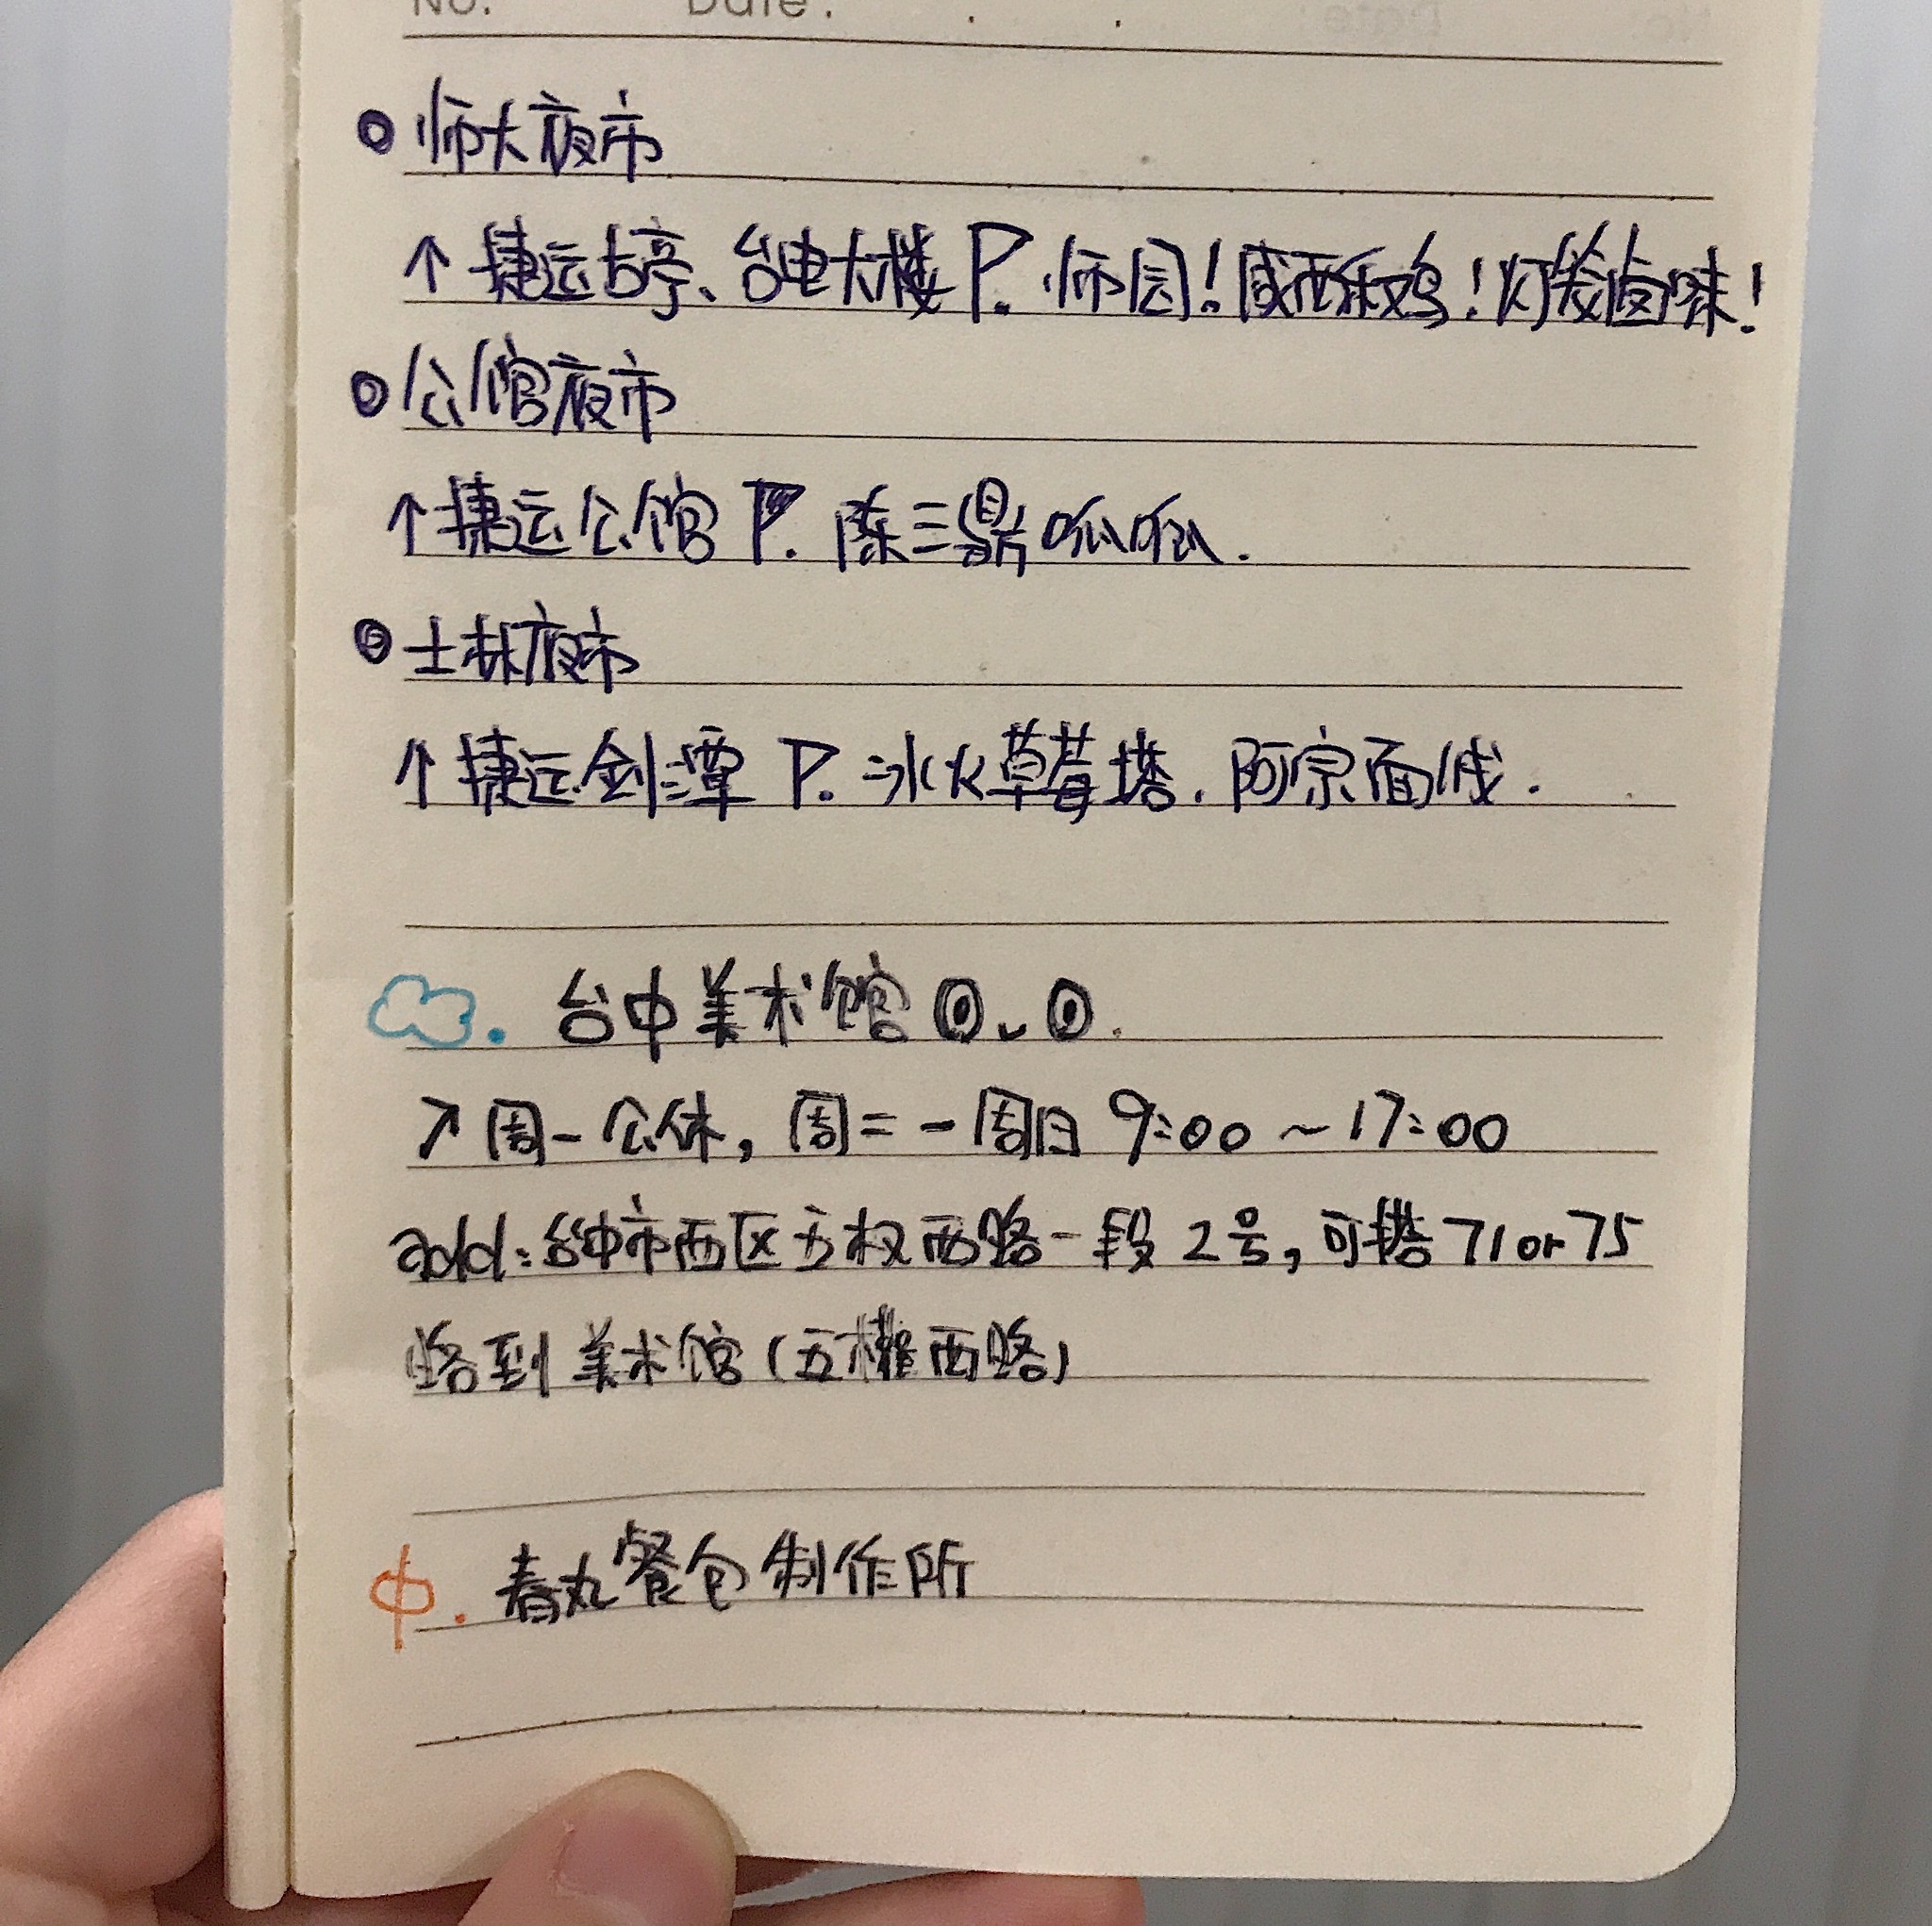 No. Date: . .
师大夜市
↑ 捷运古亭、台电大楼 P. 师园! 咸酥鸡! 灯笼卤味!
公馆夜市
↑ 捷运公馆 P. 陈三鼎呱呱.
士林夜市
↑ 捷运剑潭 P. 冰火草莓塔. 阿宗面线.
台中美术馆
↗ 周一公休, 周二-周日 9:00 ~ 17:00
add: 台中市西区五权西路一段 2号, 可搭 71 or 75
路到美术馆 (五權西路)
中. 春丸餐包制作所